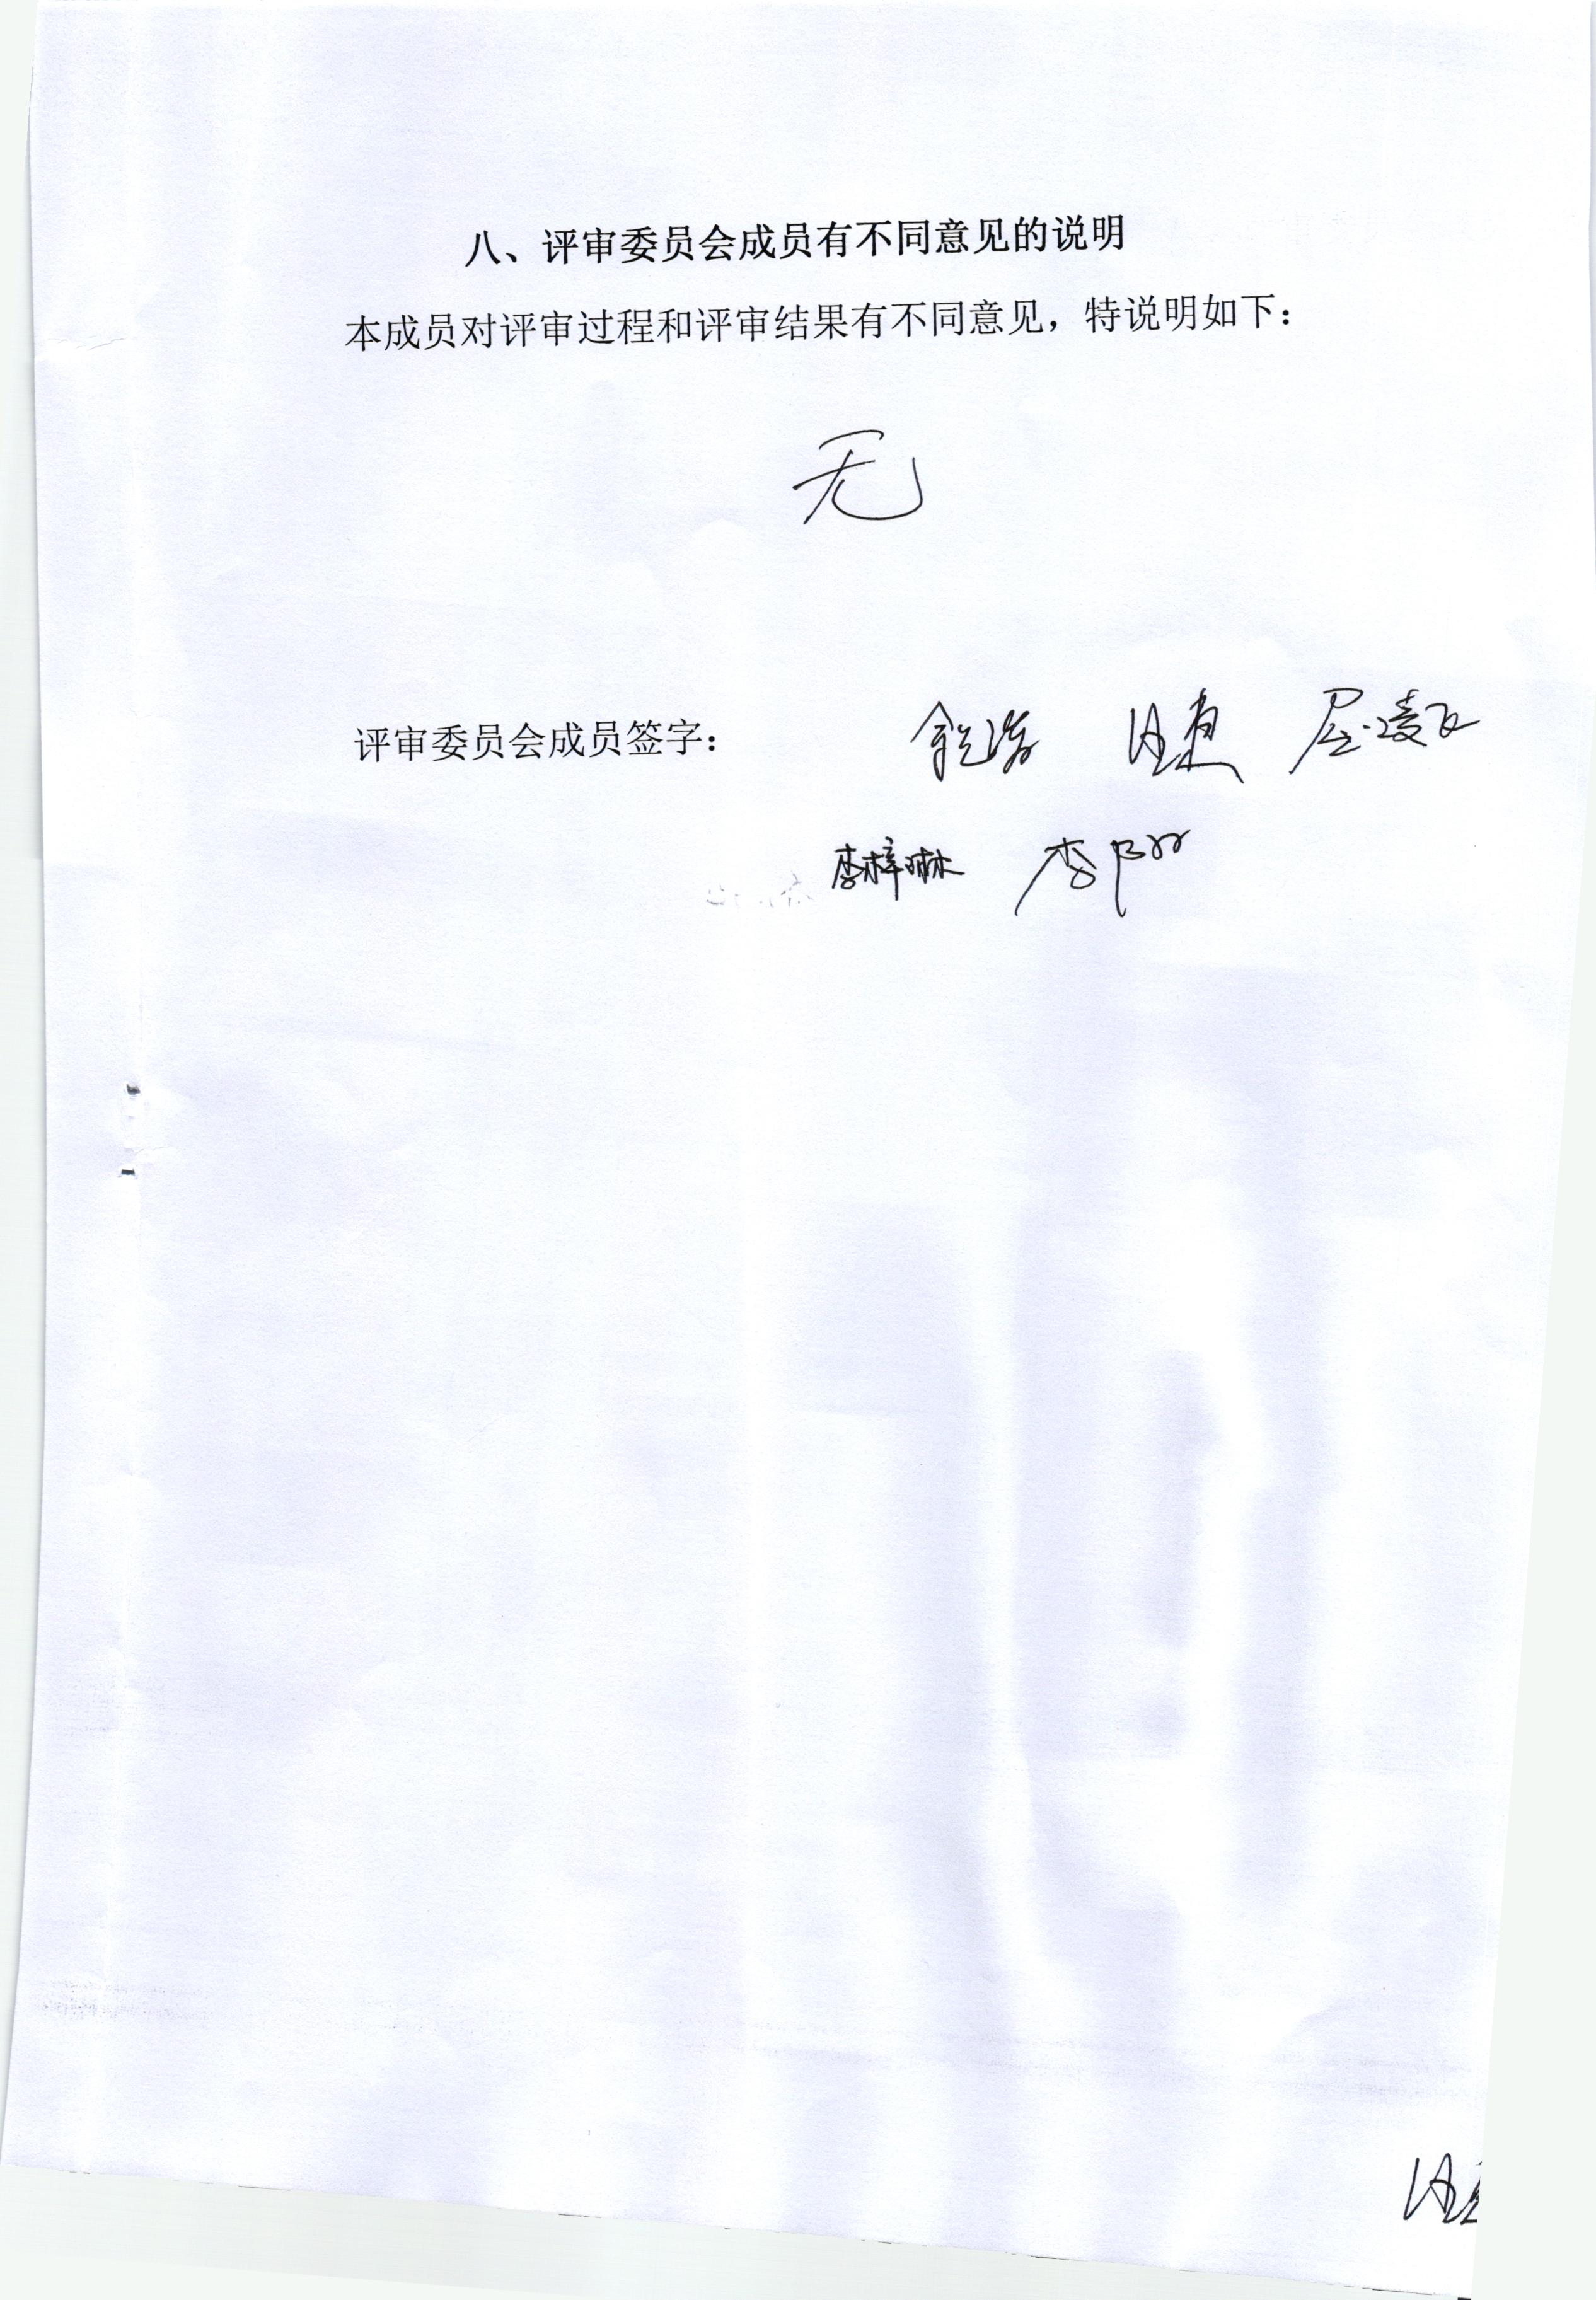 八、评审委员会成员有不同意见的说明
本成员对评审过程和评审结果有不同意见，特说明如下：
无
评审委员会成员签字：
李梓琳 李